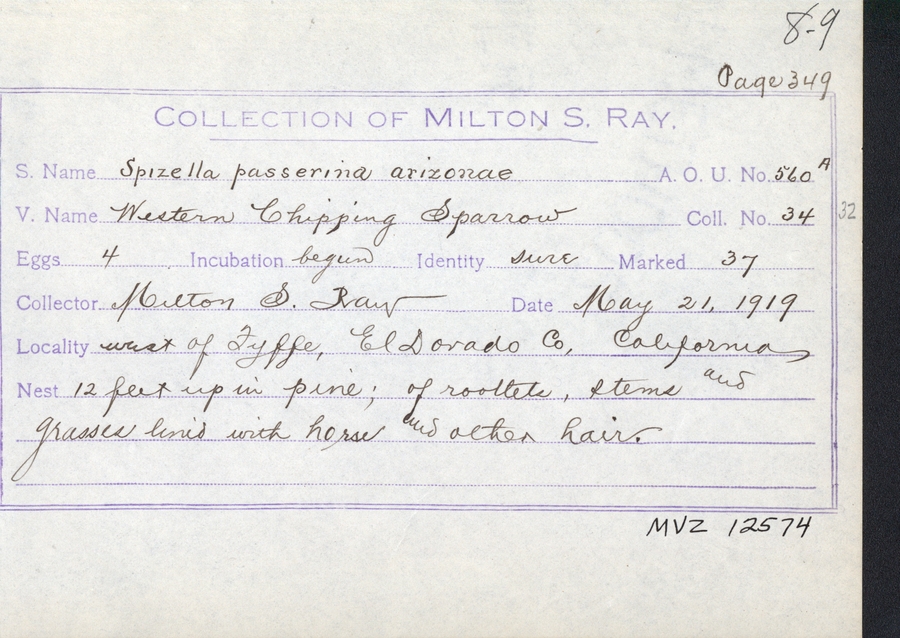 8-9
Page 349
COLLECTION OF MILTON S. RAY.
S. Name Spizella passerina arizonae A. O. U. No. 560A
V. Name Western Chipping Sparrow Coll. No. 34 32
Eggs 4 Incubation begun Identity sure Marked 37
Collector Milton S. Ray Date May 21, 1919
Locality west of Fyffe, El Dorado Co, California
Nest 12 feet up in pine; of rootlets, stems and
grasses lined with horse and other hair.
MVZ 12574